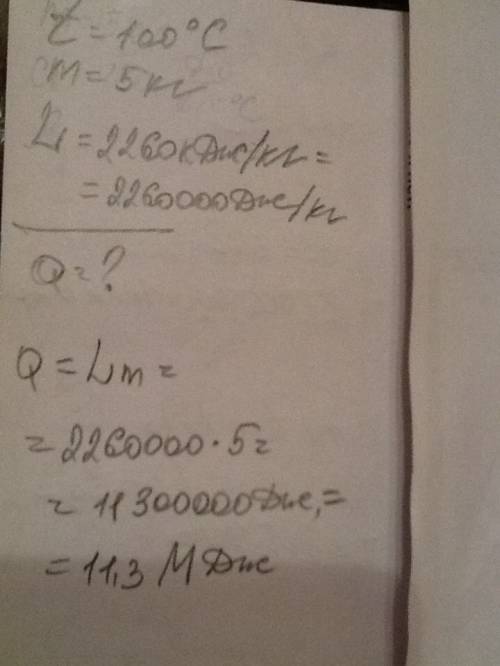 t = 100°C
m = 5 кг
L = 2260 кДж/кг =
= 2260000 Дж/кг
Q = ?
Q = Lm =
= 2260000 · 5 =
= 11 300000 Дж, =
= 11,3 МДж